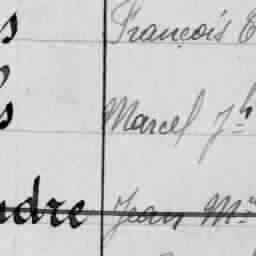 s François
s Marcel Jh
ndre Jean Mie